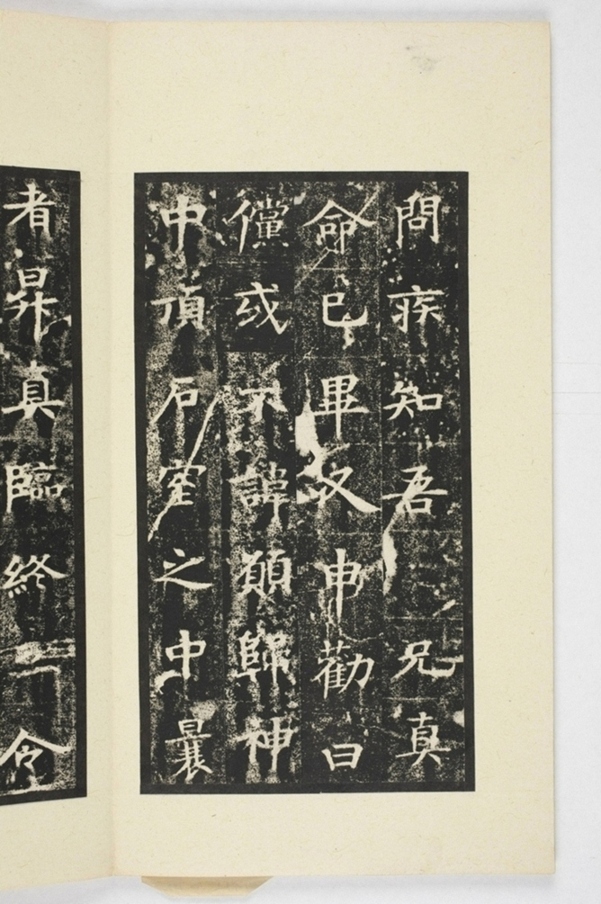 問疾知吾三兄真
命已畢叹申勸曰
儻或不諱願歸神
中頂石室之中曩
者昇真臨終令